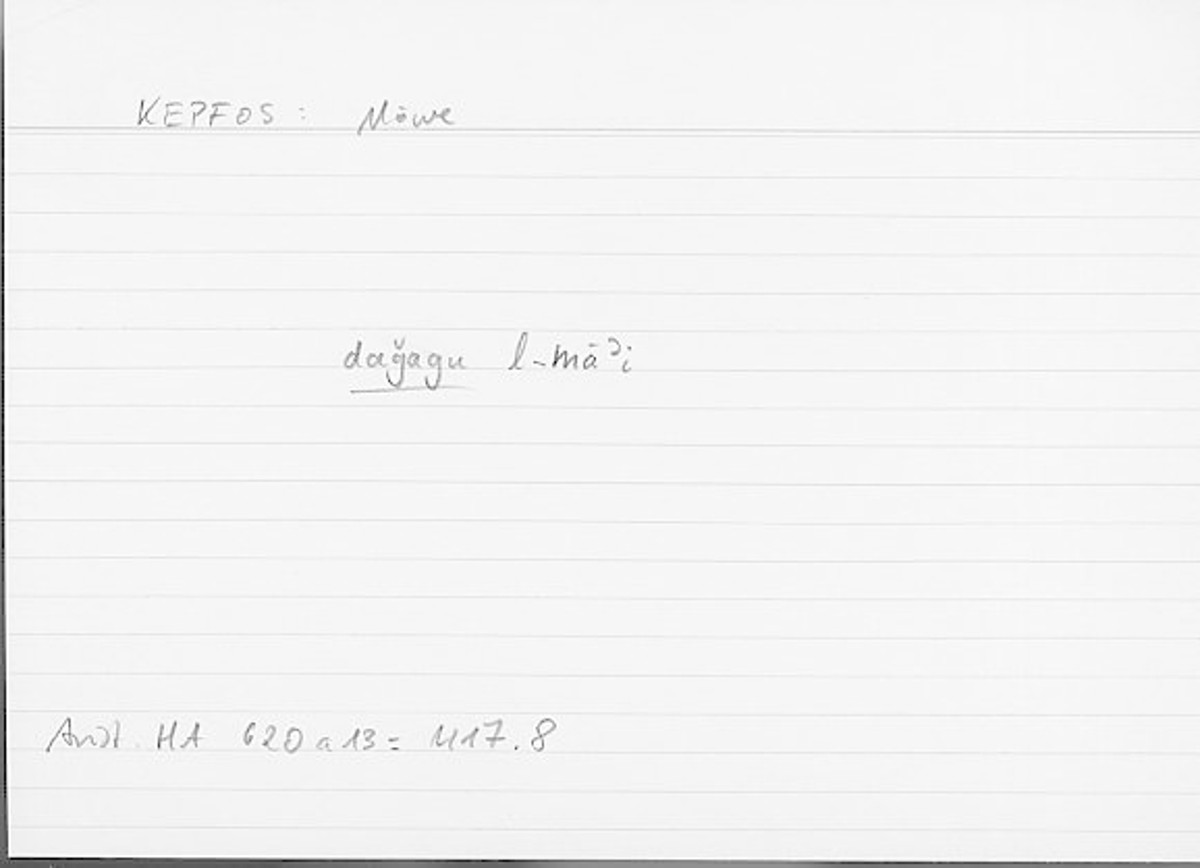 KEPFOS: Möwe
daǧagu l-māʾi
Arist. HA 620 a 13 = 417.8